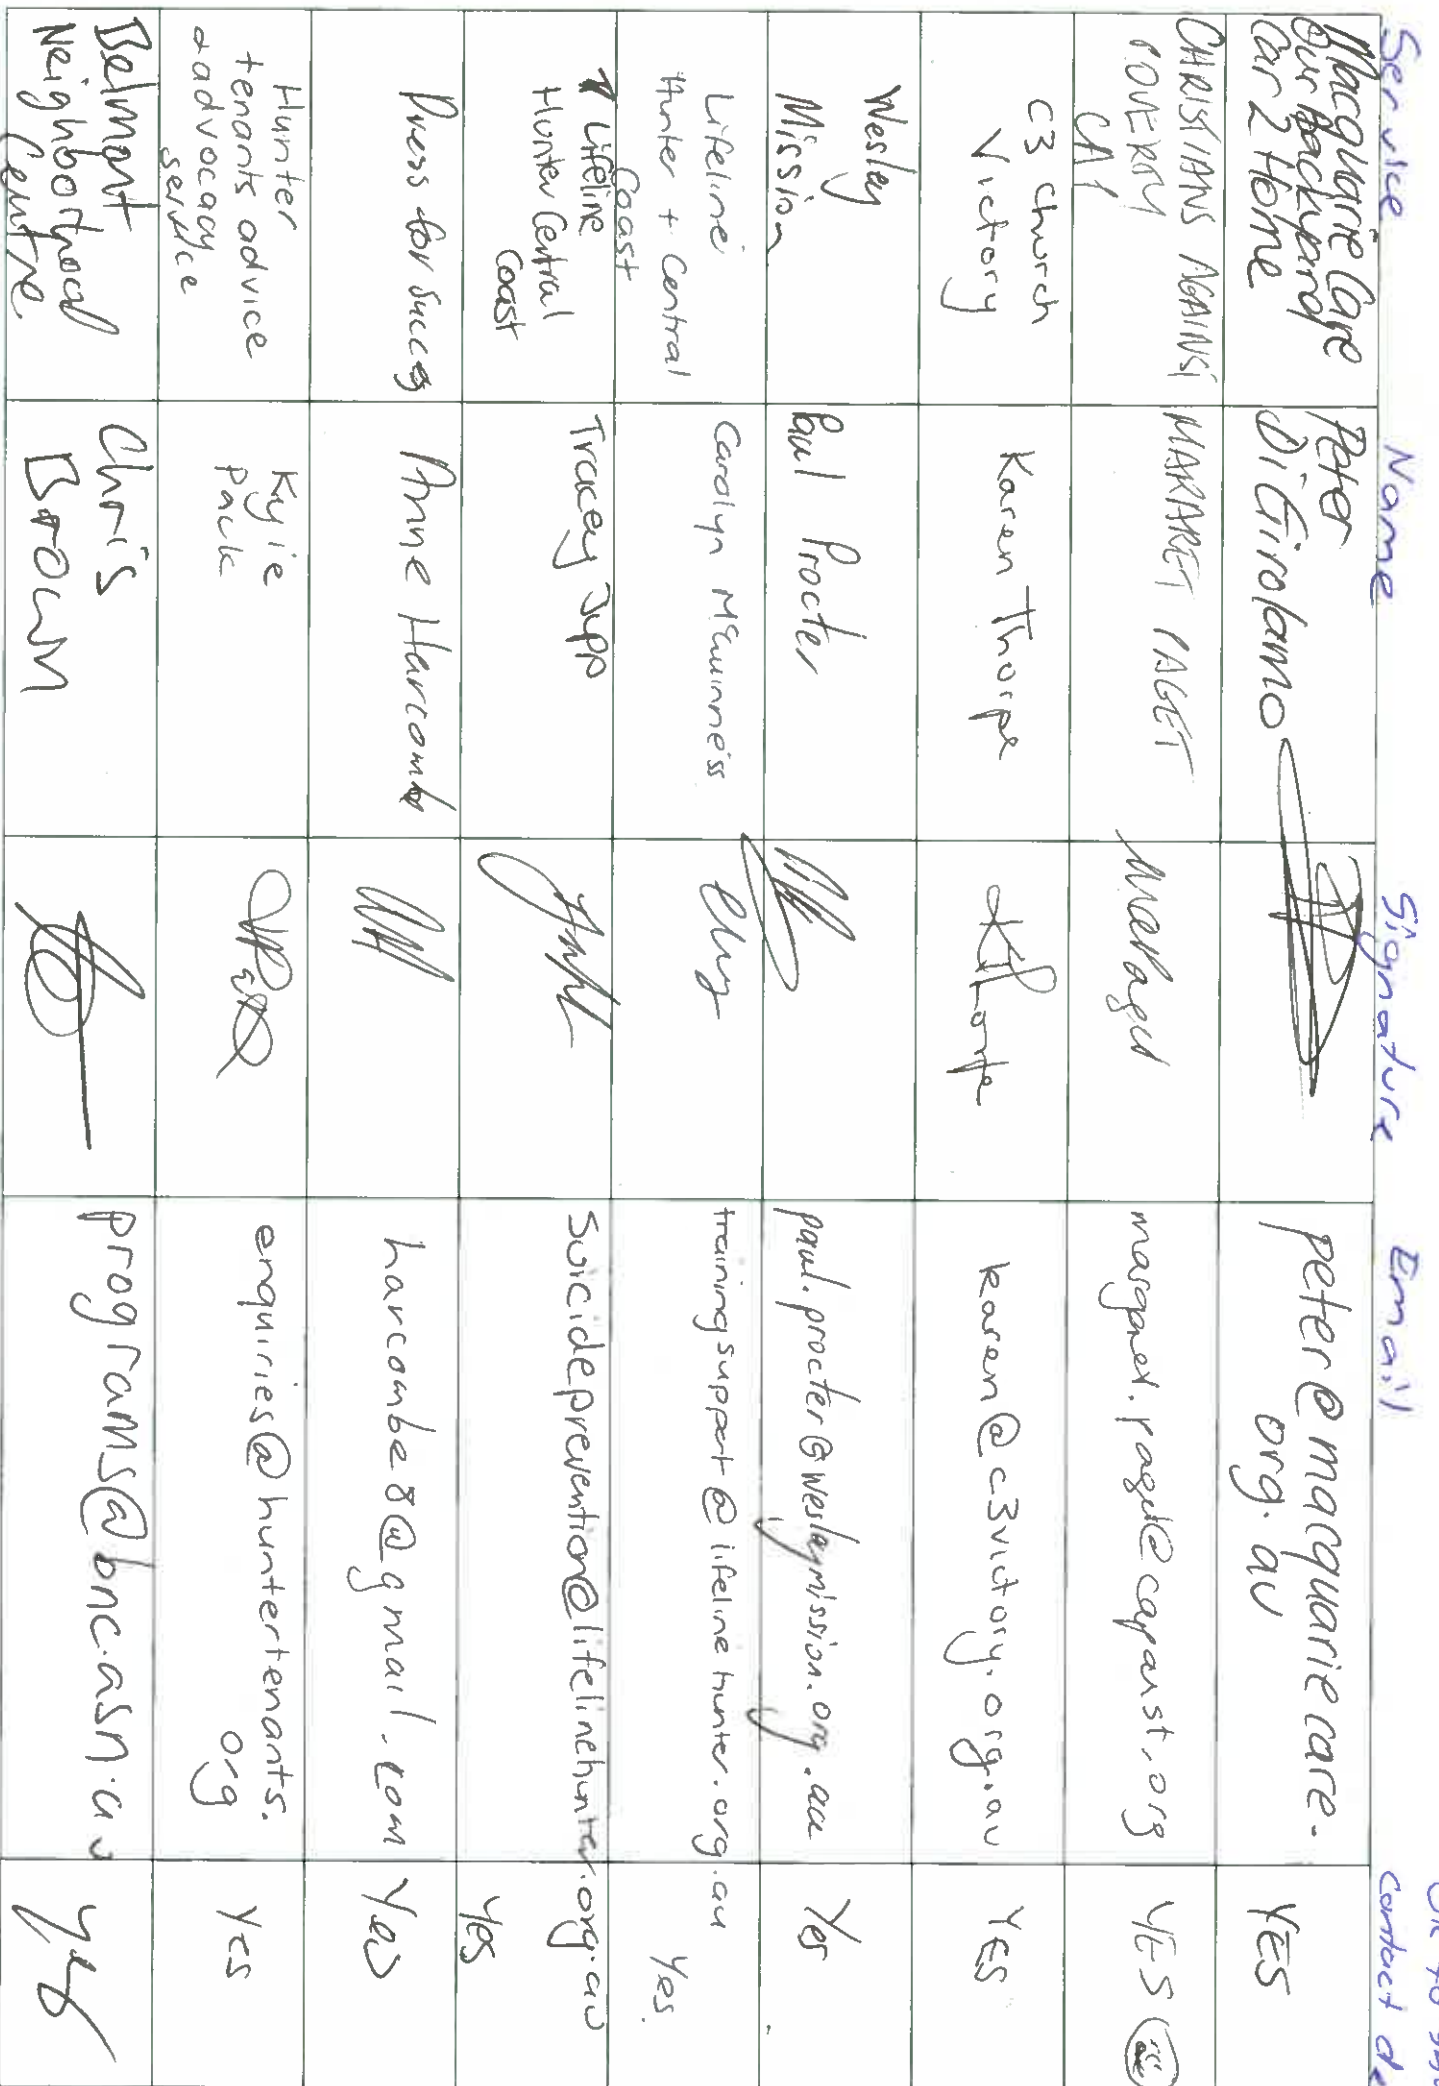 Service Name Signature Email
contact
Macquarie Care
Our Backyard
Car 2 Home
Peter
DiGirolamo
peter@macquariecare.
org.au
YES
CHRISTIANS AGAINST
POVERTY
CAP
MARARET PAGET
margaret.paget@capaust.org
YES
C3 Church
Victory
Karen Thorpe
KThorpe
karen@c3victory.org.au
YES
Wesley
Mission
Paul Procter
paul.procter@wesleymission.org.au
Yes
Lifeline
Hunter + Central
Coast
Carolyn McGuinness
trainingsupport@lifelinehunter.org.au
Yes.
Lifeline
Hunter Central
Coast
Tracey Jupp
Suicideprevention@lifelinehunter.org.au
Yes
Dress for Success
Anne Harcombe
harcombe8@gmail.com
Yes
Hunter
tenants advice
& advocacy
service
Kylie
Pack
enquiries@huntertenants.
org
Yes
Belmont
Neighborhood
Centre
Chris
Brown
programs@bnc.asn.au
Yes